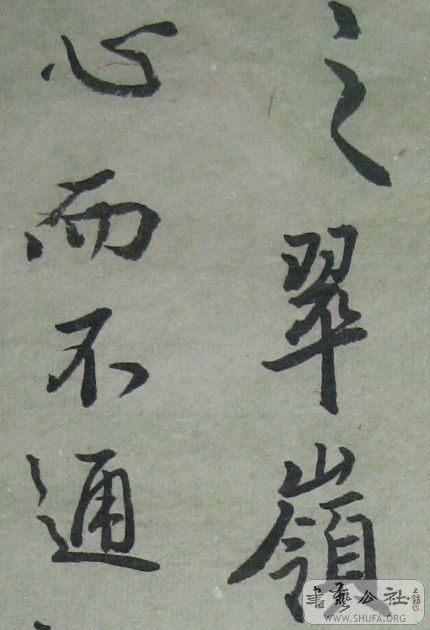 之翠嶺
心而不通
書藝公社
WWW.SHUFA.ORG